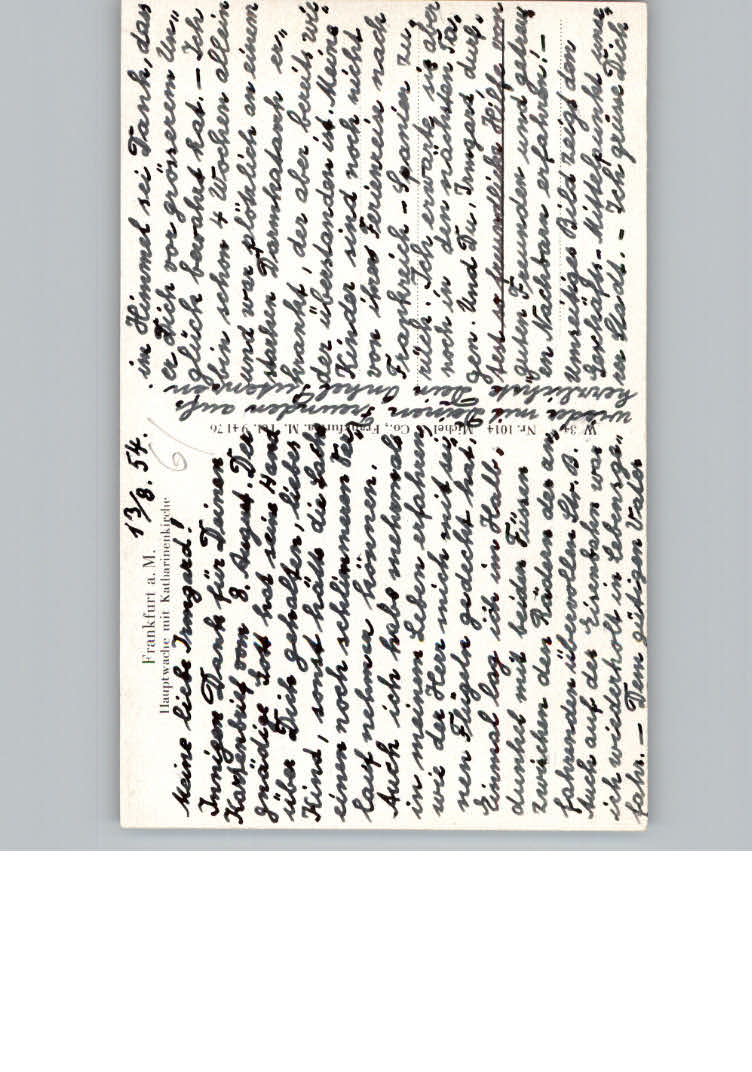 Frankfurt a. M.
Hauptwache mit Katharinenkirche
13/8. 54.
61
Meine liebe Irmgard!
Innigen Dank für Deinen
Kartenbrief vom 8. August. Der
gnädige Gott hat seine Hand
über Dich gehalten, liebes
Kind, sonst hätte die Sache
einen noch schlimmeren Ver„
lauf nehmen können.
Auch ich habe mehrmals
in meinem Leben erfahren
wie der Herr mich mit sei„
nen Flügeln gedeckt hat.
Einmal lag ich im Halb„
dunkel mit beiden Füssen
zwischen den Rädern der an„
fahrenden übervollen Str. B.
Auch auf der Eisenbahn war
ich wiederholt in Lebensge„
fahr. – Dem gütigen Vater
im Himmel sei Dank, das
er Dich vor grösserem Un„
glück bewahrt hat. – Ich
bin schon 4 Wochen allein
und war plötzlich an einem
starken Darmkatarrh er„
krankt, der aber bereits wie„
der überstanden ist. Meine
Kinder sind noch nicht
von ihrer Ferienreise nach
Frankreich – Spanien zu„
rück. Ich erwarte sie aber
noch in den nächsten Ta„
gen. Und Du, Irmgard, durf„
test so freundliche Hilfe von
guten Freunden und getreu„
en Nachbarn erfahren! –
Umseitiges Bild zeigt den
Geschäfts-Mittelpunkt uns„
rer Stadt. – Ich grüsse Dich
wieder mit Deinen Freunden aufs
herzlichste Dein Onkel
W 34 Nr. 1014 Michel & Co., Frankfurt a. M. Tel. 94176